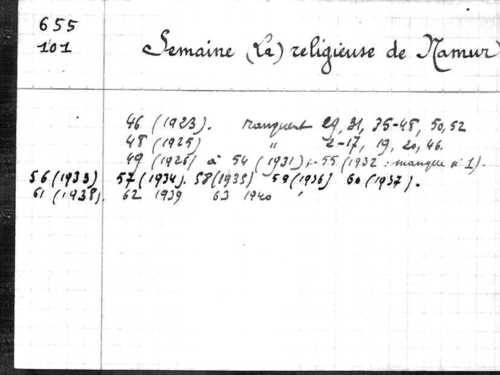 655
101
Semaine (La) religieuse de Namur
46 (1923). manquent 29, 31, 35-48, 50, 52
48 (1925) " 2-17, 19, 20, 46.
49 (1926) à 54 (1931) + 55 (1932 : manque n° 1).
56 (1933) 57 (1934). 58 (1935) 59 (1936) 60 (1937).
61 (1938). 62 1939 63 1940